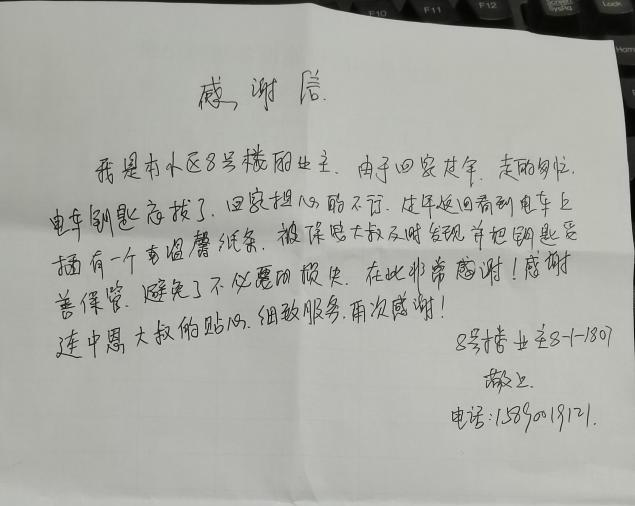 F10 F11 F12
感谢信
我是本小区8号楼的业主，由于回家过年，走的匆忙，
电车钥匙忘拔了，回家担心的不行，过年返回看到电车上
插有一个温馨纸条，被保安大叔及时发现并把钥匙妥
善保管，避免了不必要的损失，在此非常感谢！感谢
连中恩大叔的贴心，细致服务，再次感谢！
8号楼业主8-1-1807
敬上
电话：15890019121.